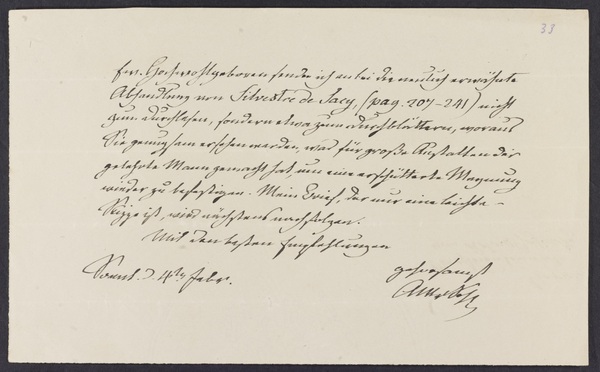 33
Ew. Hochwohlgeboren sende ich anbei die neulich erwähnte
Abhandlung von Silvestre de Sacy, (pag. 207-241) nicht
zum durchlesen, sondern etwa zum durchblättern, woraus
Sie genugsam ersehen werden, was für große Anstalten der
gelehrte Mann gemacht hat, um eine erschütterte Meynung
wieder zu befestigen. Mein Brief, der nur eine leichte
Skizze ist, wird nächstens nachfolgen.
Mit den besten Empfehlungen
gehorsamst
Sonnt. d 4ten Febr.